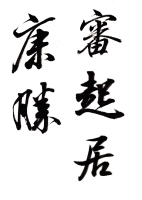 審起居
康勝